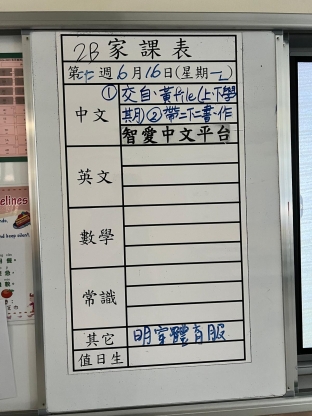 2B 家課表
第廿七週6月16日(星期一)
中文
①交自.黃file(上下學
期)②帶二下書.作
智愛中文平台
英文
數學
常識
其它
明穿體育服
值日生
elines